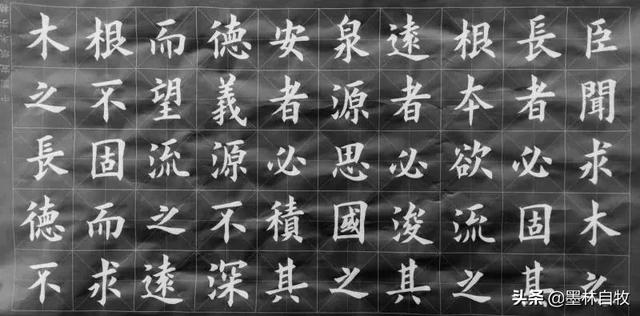 臣聞求木之
長者必固其
根本欲流之
遠者必浚其
泉源思國之
安者必積其
德義源不深
而望流之遠
根不固而求
木之長德不
头条 @墨林自牧